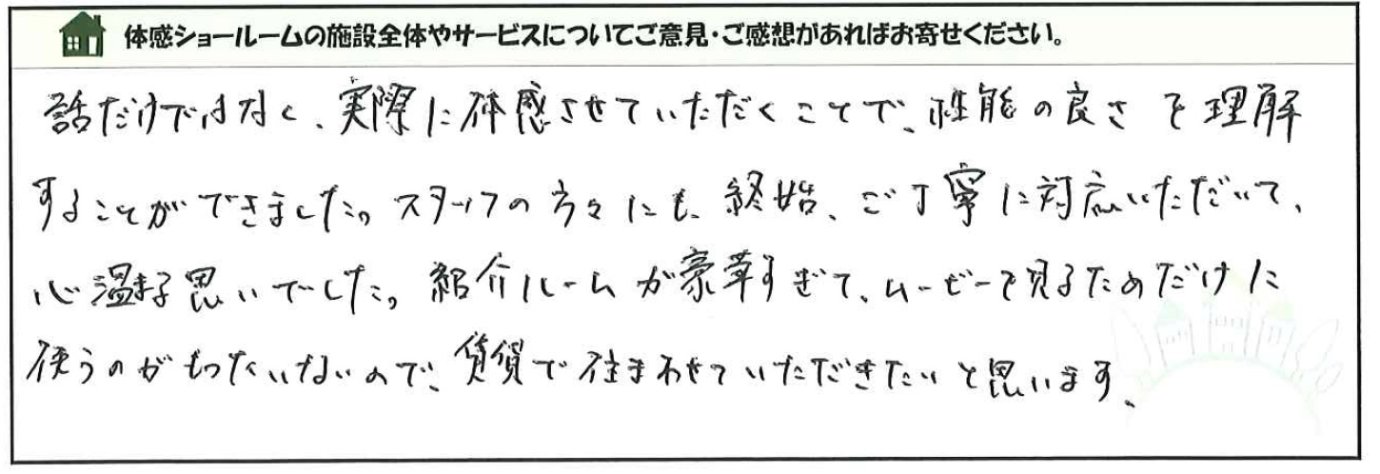 体感ショールームの施設全体やサービスについてご意見・ご感想があればお寄せください。
話だけではなく、実際に体感させていただくことで、性能の良さを理解
することができました。スタッフの方々にも、終始、ご丁寧に対応いただいて、
心温まる思いでした。紹介ルームが豪華すぎて、ムービーを見るためだけに
使うのがもったいないので、賃貸で住まわせていただきたいと思います。